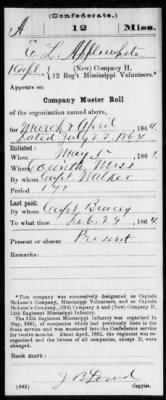 (Confederate.)
A 12 Miss.
(New) Company H,
12 Reg't Mississippi Volunteers.*
Appears on
Company Muster Roll
of the organization named above,
for March & April, 1864.
dated July 22, 1864
Enlisted:
When May 5, 1861.
Where Corinth Miss
By whom Capt Walker
Period 1 yr
Last paid:
By whom Capt
To what time Feb. 29, 1864.
Present or absent Present
Remarks:
*This company was successively designated as Captain
McLean's Company, Mississippi Volunteers, and as Captain
McLean's Company, (Old) Company A and (New) Company H,
12th Regiment Mississippi Infantry.
The 12th Regiment Mississippi Infantry was organized in
May, 1861, of companies which had previously been in the
State service and was mustered into the Confederate service
for twelve months. About April, 1862, the regiment was re-
organized and the letters of all the companies, except D, were
changed.
Book mark:
(642)
Copyist.